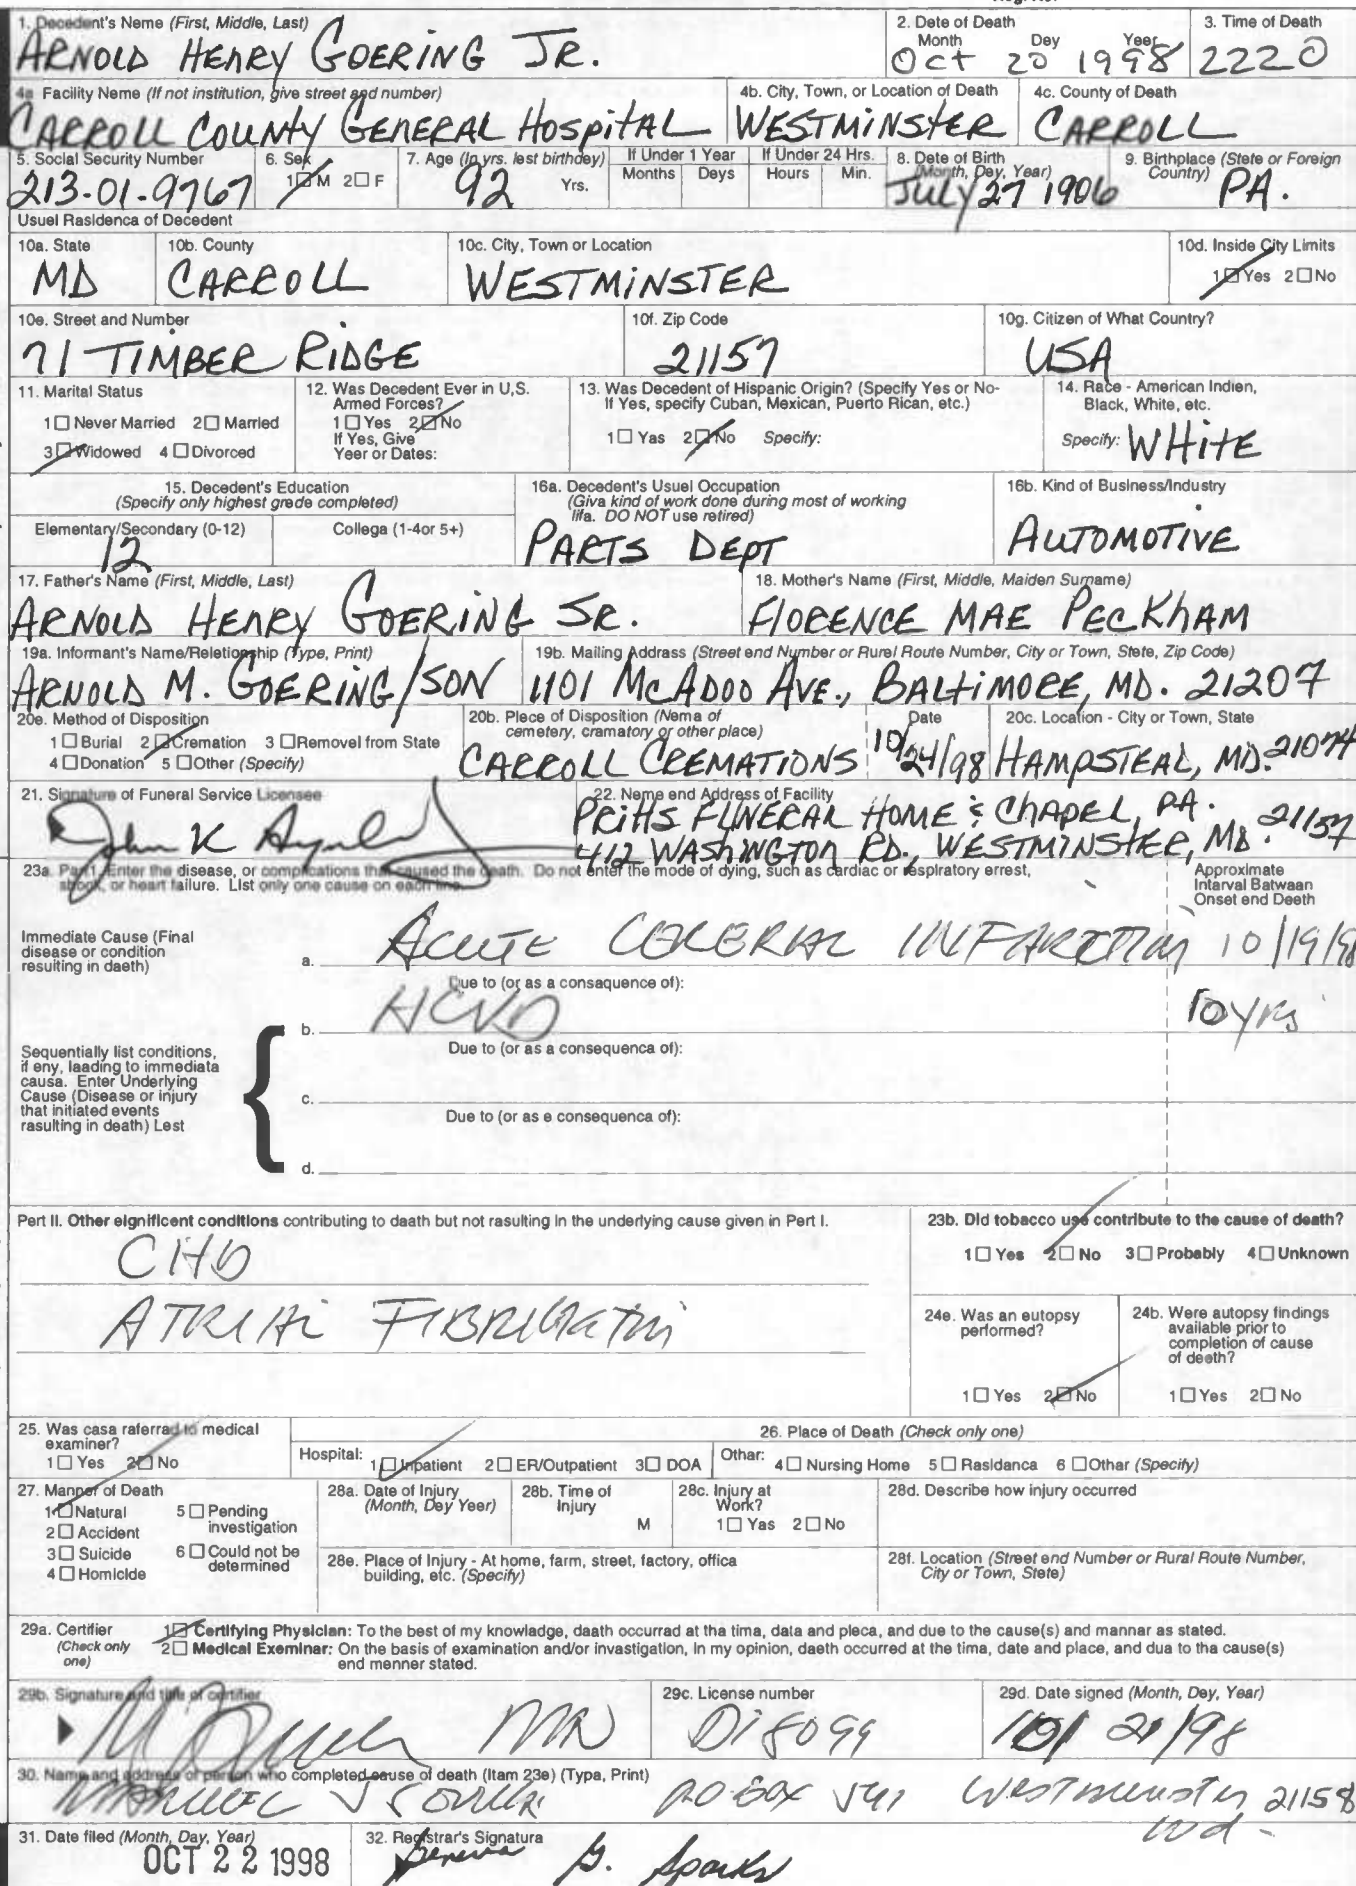 1. Decedent's Name (First, Middle, Last)
ARNOLD HENRY GOERING JR.
2. Date of Death
Month Dey Year
Oct 20 1998
3. Time of Death
2220
4a Facility Neme (If not institution, give street and number)
CARROLL COUNTY GENERAL HOSPITAL
4b. City, Town, or Location of Death
WESTMINSTER
4c. County of Death
CARROLL
5. Social Security Number
213-01-9767
6. Sex
1☑ M 2☐ F
7. Age (In yrs. lest birthdey)
92 Yrs.
If Under 1 Year
Months Deys
If Under 24 Hrs.
Hours Min.
8. Dete of Birth
(Month, Dey, Year)
JULY 27 1906
9. Birthplace (Stete or Foreign
Country)
PA.
Usuel Rasidenca of Decedent
10a. State
MD
10b. County
CARROLL
10c. City, Town or Location
WESTMINSTER
10d. Inside City Limits
1☑ Yes 2☐ No
10e. Street and Number
71 TIMBER RIDGE
10f. Zip Code
21157
10g. Citizen of What Country?
USA
11. Marital Status
1☐ Never Married 2☐ Married
3☑ Widowed 4☐ Divorced
12. Was Decedent Ever in U,S.
Armed Forces?
1☐ Yes 2☑ No
If Yes, Give
Yeer or Dates:
13. Was Decedent of Hispanic Origin? (Specify Yes or No-
If Yes, specify Cuban, Mexican, Puerto Rican, etc.)
1☐ Yas 2☑ No Specify:
14. Race - American Indien,
Black, White, etc.
Specify: WHITE
15. Decedent's Education
(Specify only highest grede completed)
Elementary/Secondary (0-12) Collega (1-4or 5+)
12
16a. Decedent's Usuel Occupation
(Giva kind of work done during most of working
lifa. DO NOT use retired)
PARTS DEPT
16b. Kind of Business/Industry
AUTOMOTIVE
17. Father's Name (First, Middle, Last)
ARNOLD HENRY GOERING SR.
18. Mother's Name (First, Middle, Maiden Surname)
FLORENCE MAE PECKHAM
19a. Informant's Name/Reletionship (Type, Print)
ARNOLD M. GOERING/SON
19b. Mailing Address (Street end Number or Rurel Route Number, City or Town, Stete, Zip Code)
1101 MCADOO AVE., BALTIMORE, MD. 21207
20e. Method of Disposition
1☐ Burial 2☑ Cremation 3☐ Removel from State
4☐ Donation 5☐ Other (Specify)
20b. Plece of Disposition (Nema of
cemetery, cramatory or other place)
CARROLL CREMATIONS
Date
10/24/98
20c. Location - City or Town, State
HAMPSTEAD, MD. 21074
21. Signature of Funeral Service Licensee
John K
22. Neme end Address of Facility
PRITTS FUNERAL HOME & CHAPEL, PA.
412 WASHINGTON RD., WESTMINSTER, MD. 21157
23a. Part I. Enter the disease, or complications that caused the death. Do not enter the mode of dying, such as cardiac or respiratory errest,
shock, or heart failure. List only one cause on each line.
Approximate
Intarval Batwaan
Onset end Deeth
Immediate Cause (Final
disease or condition
resulting in daeth)
a. ACUTE CEREBRAL INFARCTION 10/19/98
Due to (or as a consaquence of):
b. HCVD 10 yrs
Due to (or as a consequenca of):
Sequentially list conditions,
if eny, laading to immediata
causa. Enter Underlying
Cause (Disease or injury
that initiated events
rasulting in death) Lest
c.
Due to (or as e consequenca of):
d.
Part II. Other eignificent conditions contributing to daath but not rasulting in the underlying cause given in Part I.
CHD
ATRIAL FIBRILLATION
23b. Did tobacco use contribute to the cause of death?
1☐ Yes 2☑ No 3☐ Probably 4☐ Unknown
24e. Was an eutopsy
performed?
1☐ Yes 2☑ No
24b. Were autopsy findings
available prior to
completion of cause
of deeth?
1☐ Yes 2☐ No
25. Was casa raferrad to medical
examiner?
1☐ Yes 2☑ No
26. Place of Death (Check only one)
Hospital: 1☑ Inpatient 2☐ ER/Outpatient 3☐ DOA
Othar: 4☐ Nursing Home 5☐ Rasidanca 6☐ Othar (Specify)
27. Manner of Death
1☑ Natural 5☐ Pending
investigation
2☐ Accident
3☐ Suicide 6☐ Could not be
determined
4☐ Homicide
28a. Date of Injury
(Month, Dey Year)
28b. Time of
Injury
M
28c. Injury at
Work?
1☐ Yas 2☐ No
28d. Describe how injury occurred
28e. Place of Injury - At home, farm, street, factory, offica
building, etc. (Specify)
28f. Location (Street end Number or Rural Route Number,
City or Town, Stete)
29a. Certifier
(Check only
one)
1☑ Certifying Physician: To the best of my knowladge, daath occurrad at tha tima, data and pleca, and due to the cause(s) and mannar as stated.
2☐ Medical Exeminar: On the basis of examination and/or invastigation, in my opinion, daeth occurred at the tima, date and place, and dua to tha cause(s)
end menner stated.
29b. Signature and title of certifier
MD
29c. License number
D18099
29d. Date signed (Month, Dey, Year)
10/21/98
30. Name and address of person who completed cause of death (Itam 23e) (Typa, Print)
PO BOX 541 Westminster 21158
Md-
31. Date filed (Month, Day, Year)
OCT 22 1998
32. Registrar's Signatura
Geneva G. Sparks